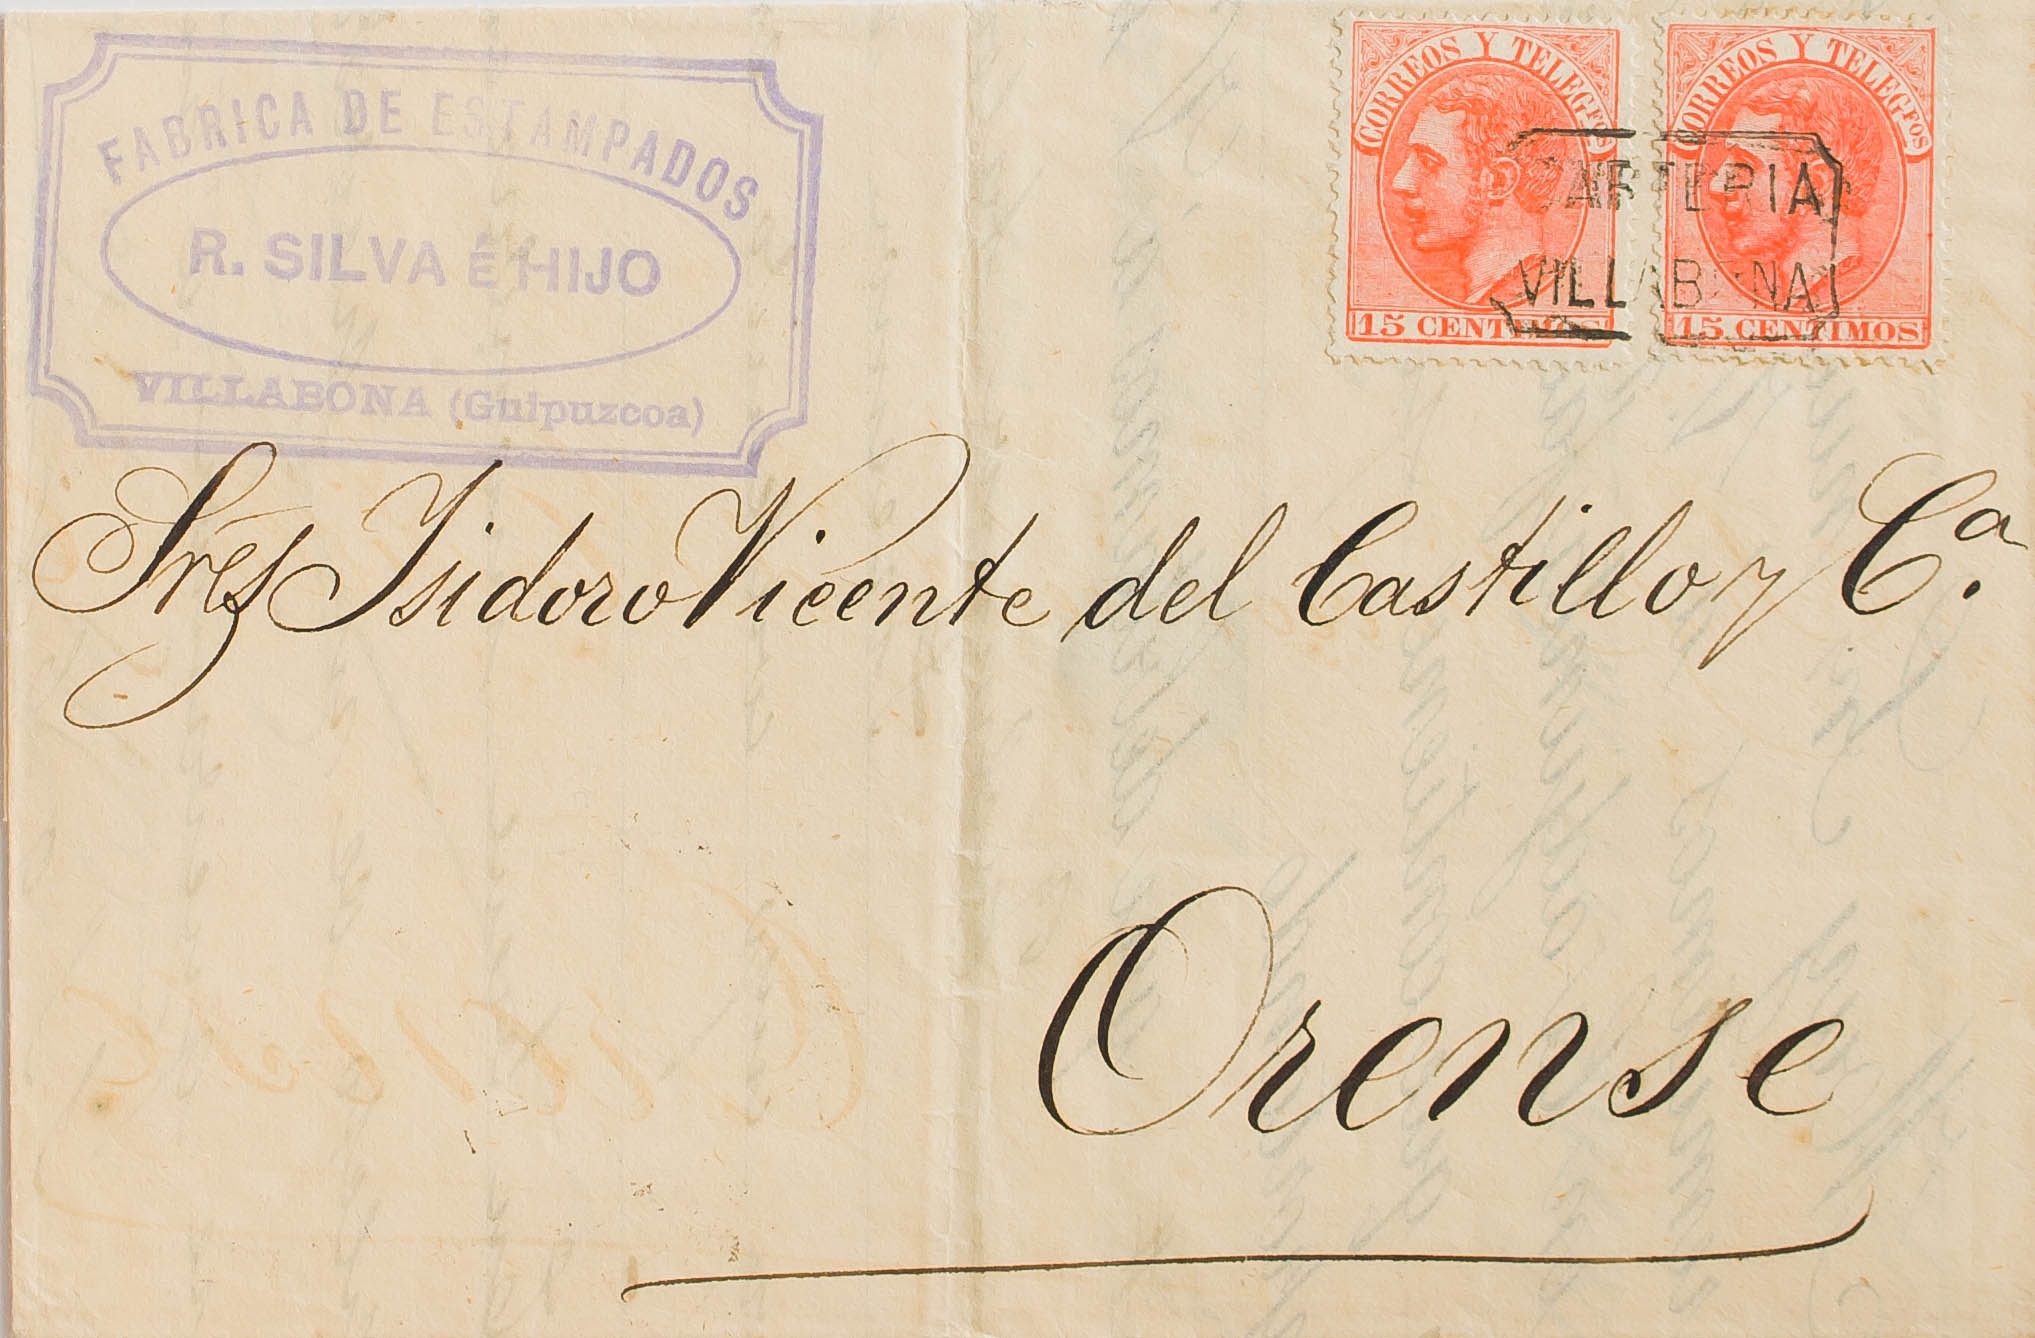 FABRICA DE ESTAMPADOS
R. SILVA É HIJO
VILLABONA (Guipuzcoa)
CORREOS Y TELEGFOS
15 CENTIMOS
CORREOS Y TELEGFOS
15 CENTIMOS
CARTERIA
VILLABONA
Srēs Isidoro Vicente del Castillo y Cª.
Orense